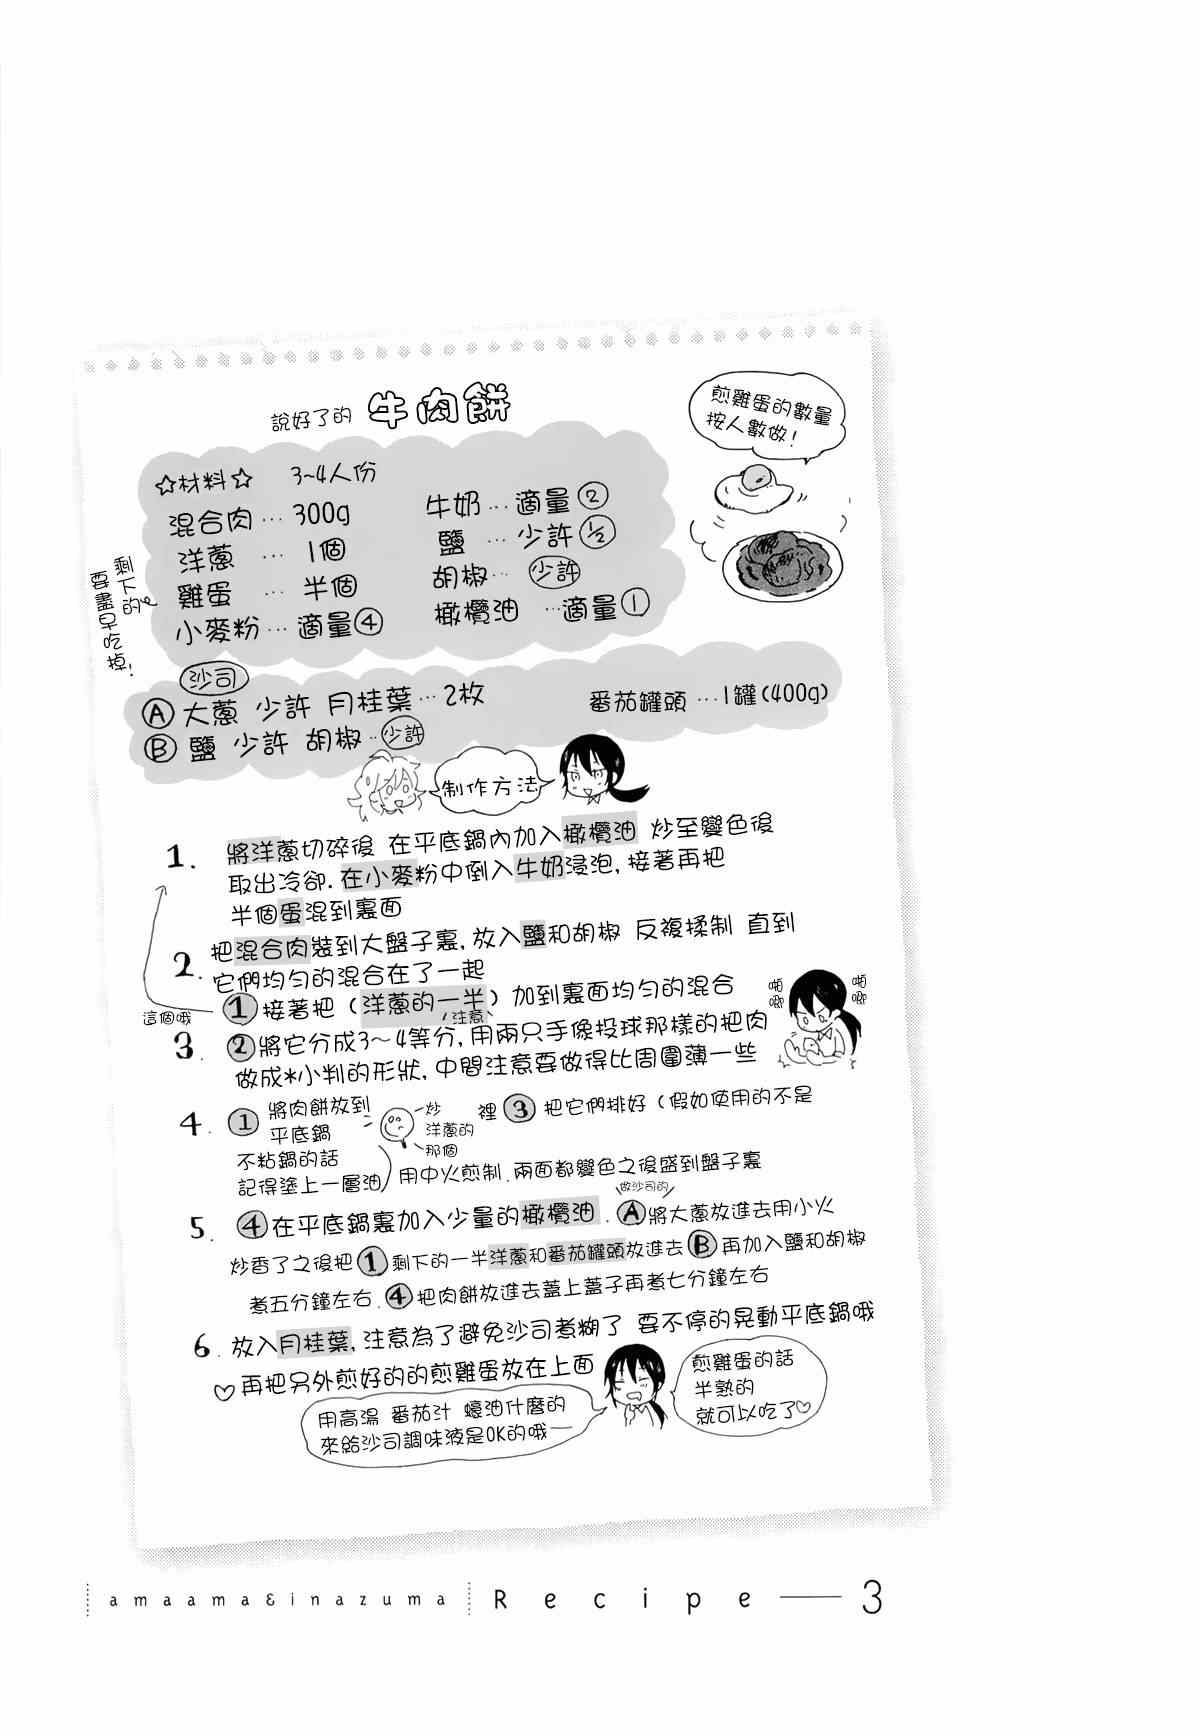 說好了的 牛肉餅
煎雞蛋的數量
按人數做！
☆材料☆ 3~4人份
混合肉…300g
洋蔥…1個
雞蛋…半個
小麥粉…適量④
牛奶…適量②
鹽…少許½
胡椒…少許
橄欖油…適量①
剩下的
要盡早吃掉！
沙司
Ⓐ 大蔥 少許 月桂葉…2枚
番茄罐頭…1罐(400g)
Ⓑ 鹽 少許 胡椒…少許
制作方法
1. 將洋蔥切碎後 在平底鍋內加入橄欖油 炒至變色後
取出冷卻.在小麥粉中倒入牛奶浸泡,接著再把
半個蛋混到裏面
2. 把混合肉裝到大盤子裏,放入鹽和胡椒 反複揉制 直到
它們均勻的混合在了一起
這個哦
①接著把（洋蔥的一半）加到裏面均勻的混合
注意
啪唧
啪唧
3. ②將它分成3~4等分,用兩只手像投球那樣的把肉
做成*小判的形狀,中間注意要做得比周圍薄一些
4. ① 將肉餅放到
平底鍋
炒
洋蔥的
那個
裡③把它們排好（假如使用的不是
不粘鍋的話
記得塗上一層油）用中火煎制.兩面都變色之後盛到盤子裏
做沙司的
5. ④在平底鍋裏加入少量的橄欖油.Ⓐ將大蔥放進去用小火
炒香了之後把①剩下的一半洋蔥和番茄罐頭放進去Ⓑ再加入鹽和胡椒
煮五分鐘左右.④把肉餅放進去蓋上蓋子再煮七分鐘左右
6. 放入月桂葉,注意為了避免沙司煮糊了 要不停的晃動平底鍋哦
♡再把另外煎好的的煎雞蛋放在上面
用高湯 番茄汁 蠔油什麼的
來給沙司調味液是OK的哦——
煎雞蛋的話
半熟的
就可以吃了♡
amaama&inazuma Recipe — 3